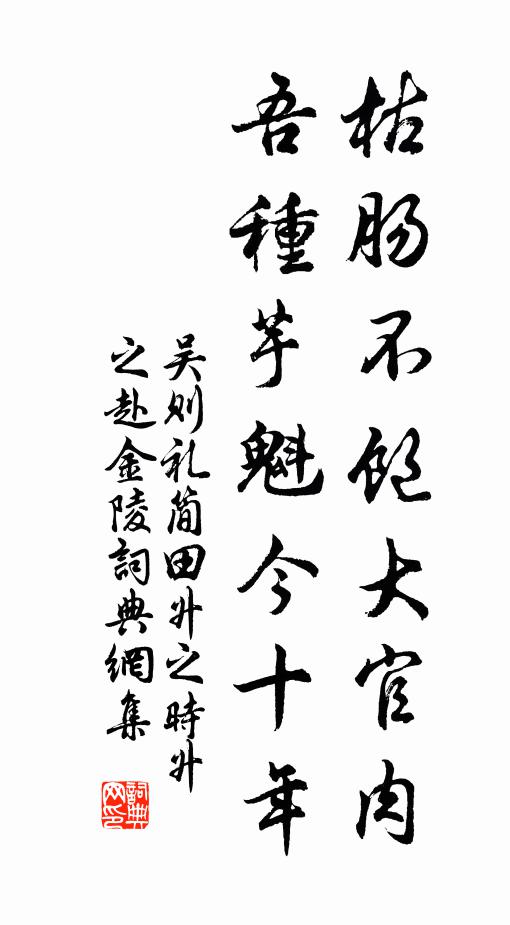 枯肠不飽大官肉
吾種芋魁今十年
吴则礼简田升之時升
之赴金陵詞典網集
詞典网印